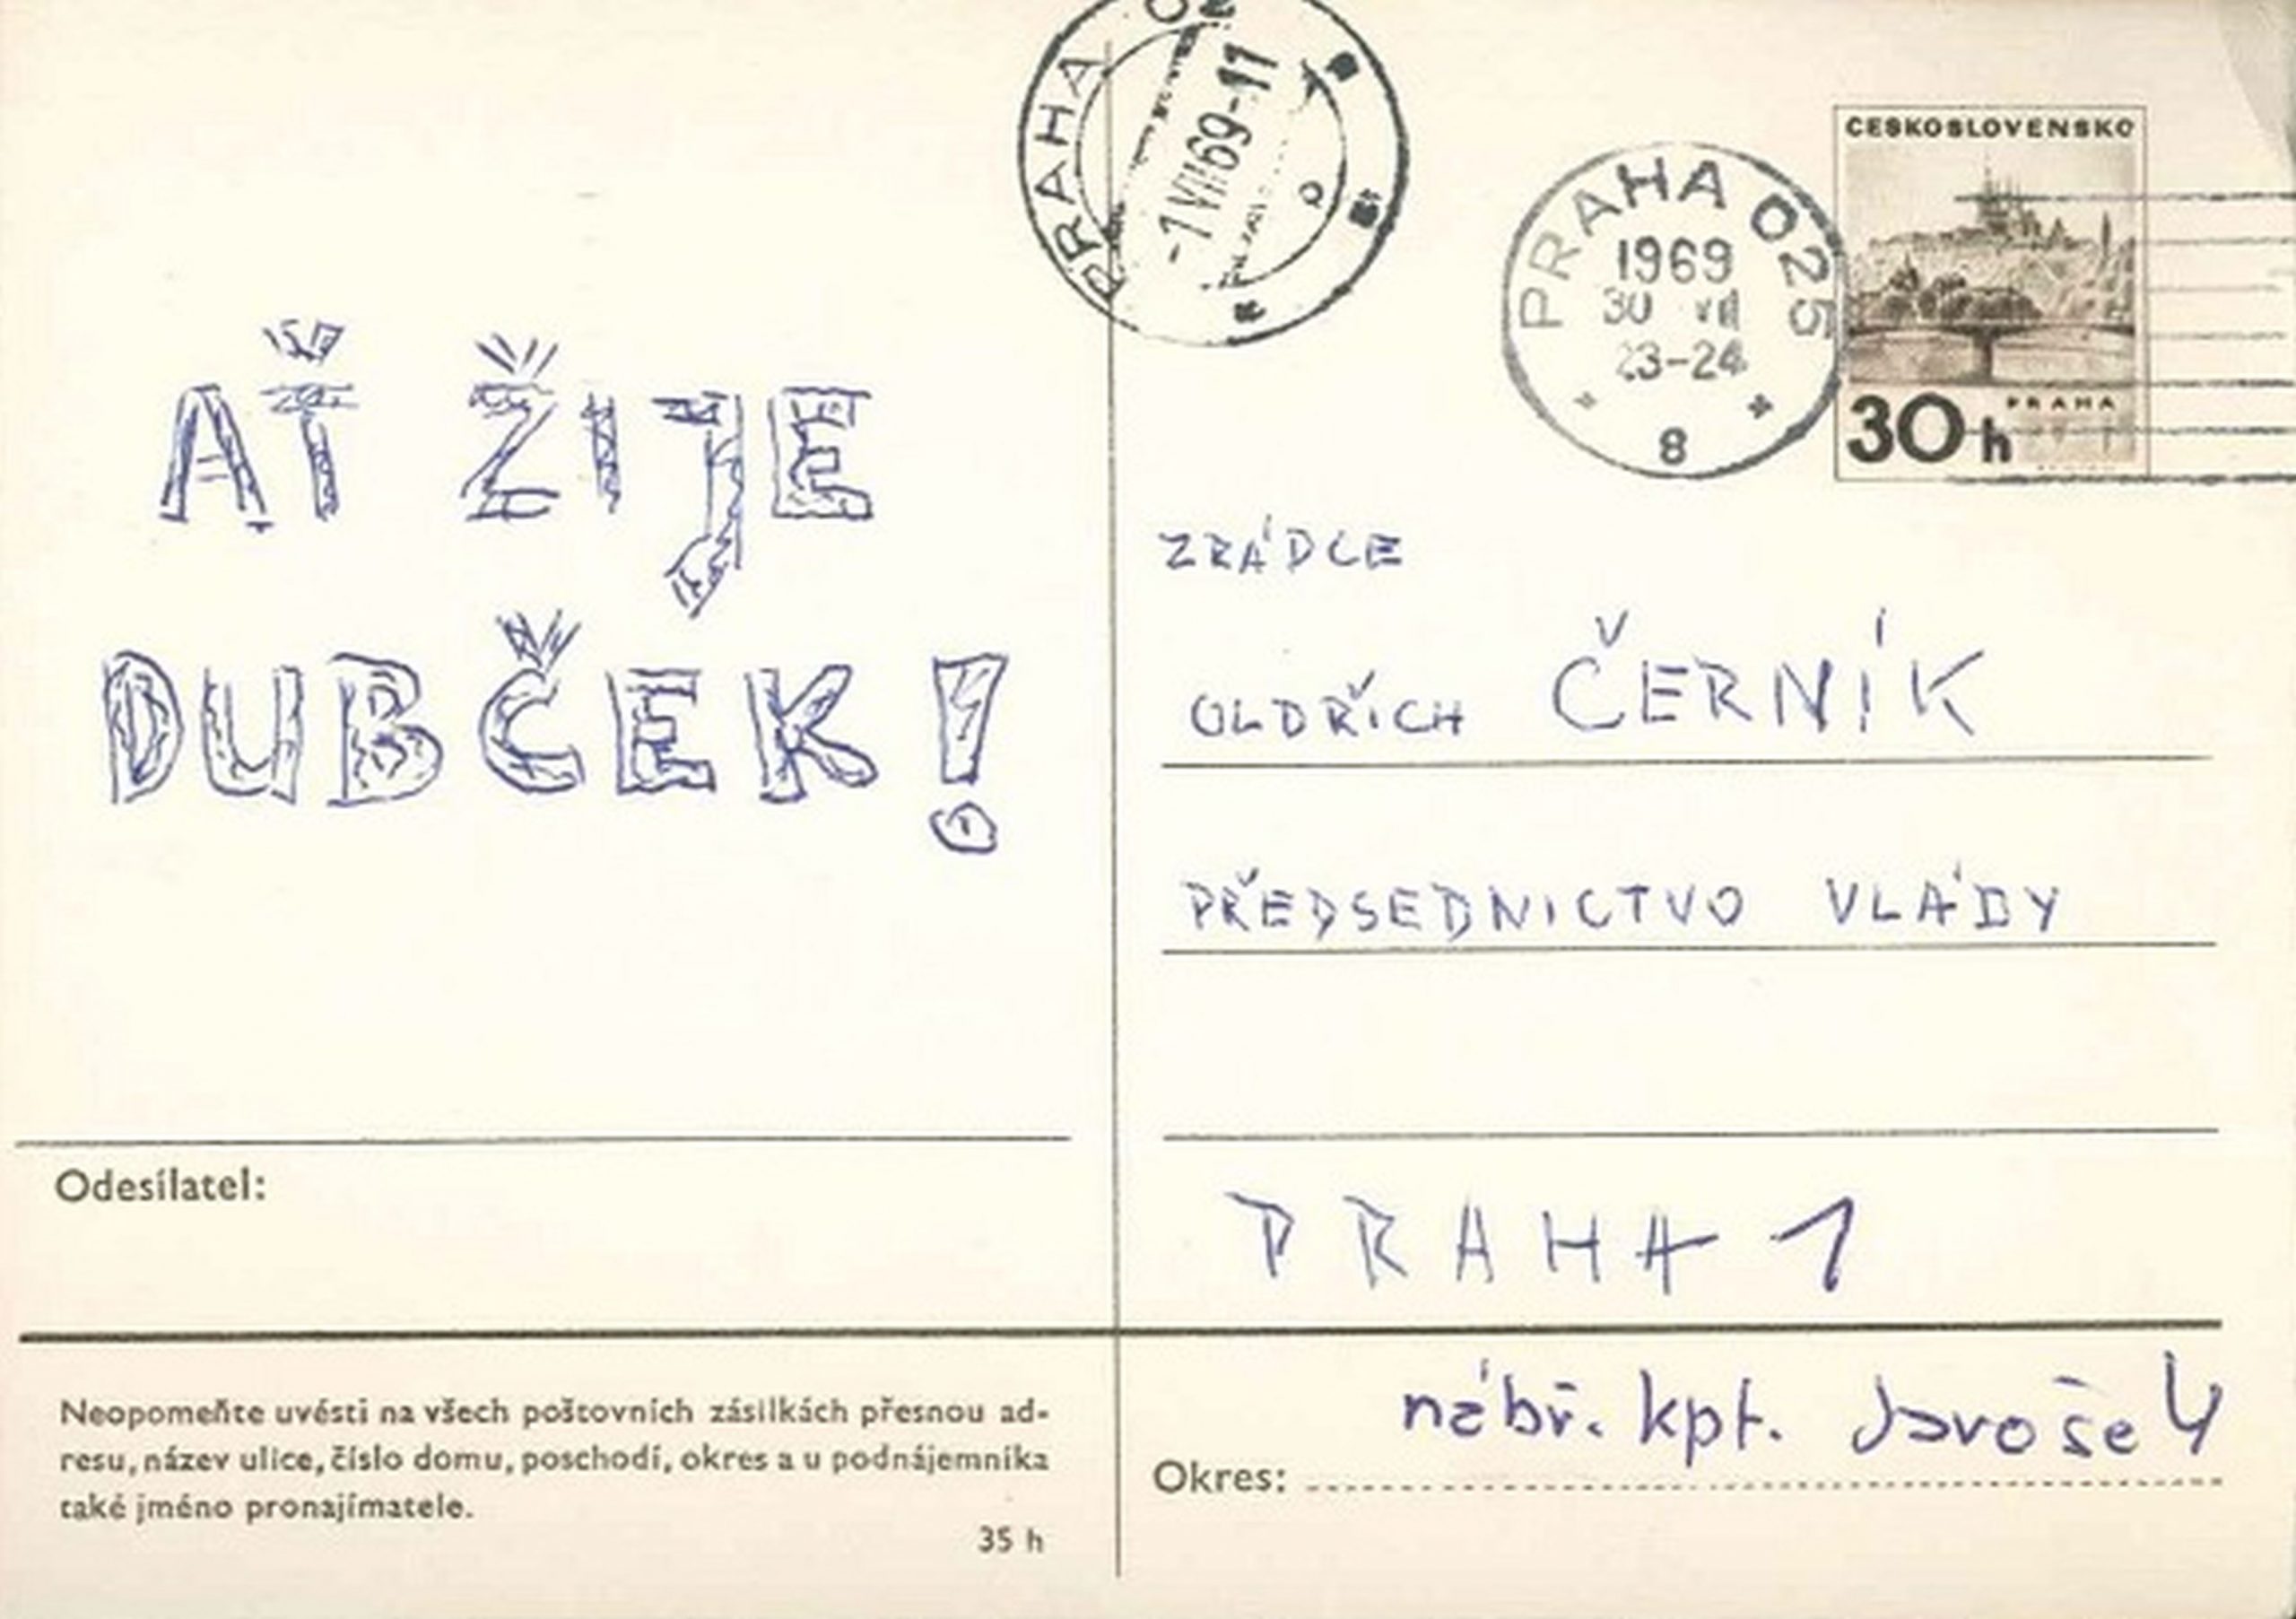 PRAHA
-1 VIII 69-11
PRAHA 025
1969
30 VII
23-24
8
CESKOSLOVENSKO
PRAHA
30 h
AŤ ŽIJE
DUBČEK!
ZRÁDCE
OLDŘICH ČERNÍK
PŘEDSEDNICTVO VLÁDY
PRAHA 1
nábř. kpt. Jaroše 4
Okres:
Odesílatel:
Neopomeňte uvésti na všech poštovních zásilkách přesnou ad-
resu, název ulice, číslo domu, poschodí, okres a u podnájemníka
také jméno pronajímatele.
35 h